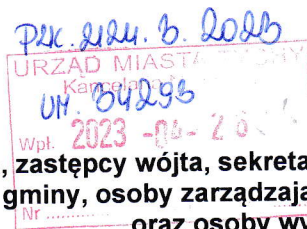 PZK. 2124. 3. 2023
URZĄD MIASTA
UM. 84293
Wpł. 2023 -04- 2
, zastępcy wójta, sekreta
gminy, osoby zarządzają
Nr
oraz osoby wy